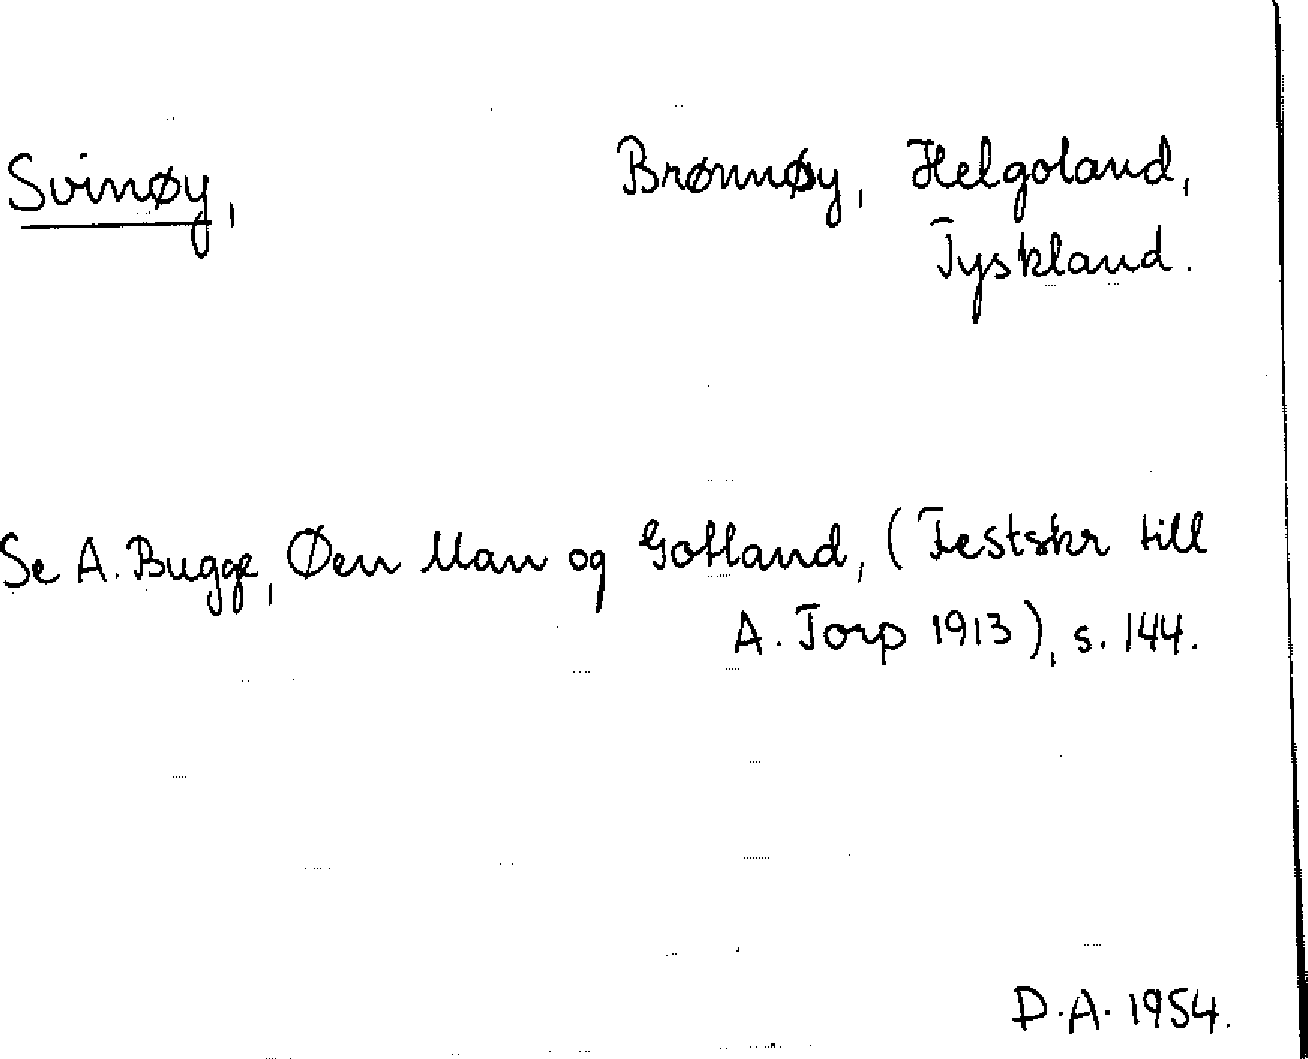 Svinøy, Brønnøy, Helgoland,
Tyskland.
Se A. Bugge, Øen Man og Gotland, (Festskr till
A. Torp 1913), s. 144.
D.A. 1954.